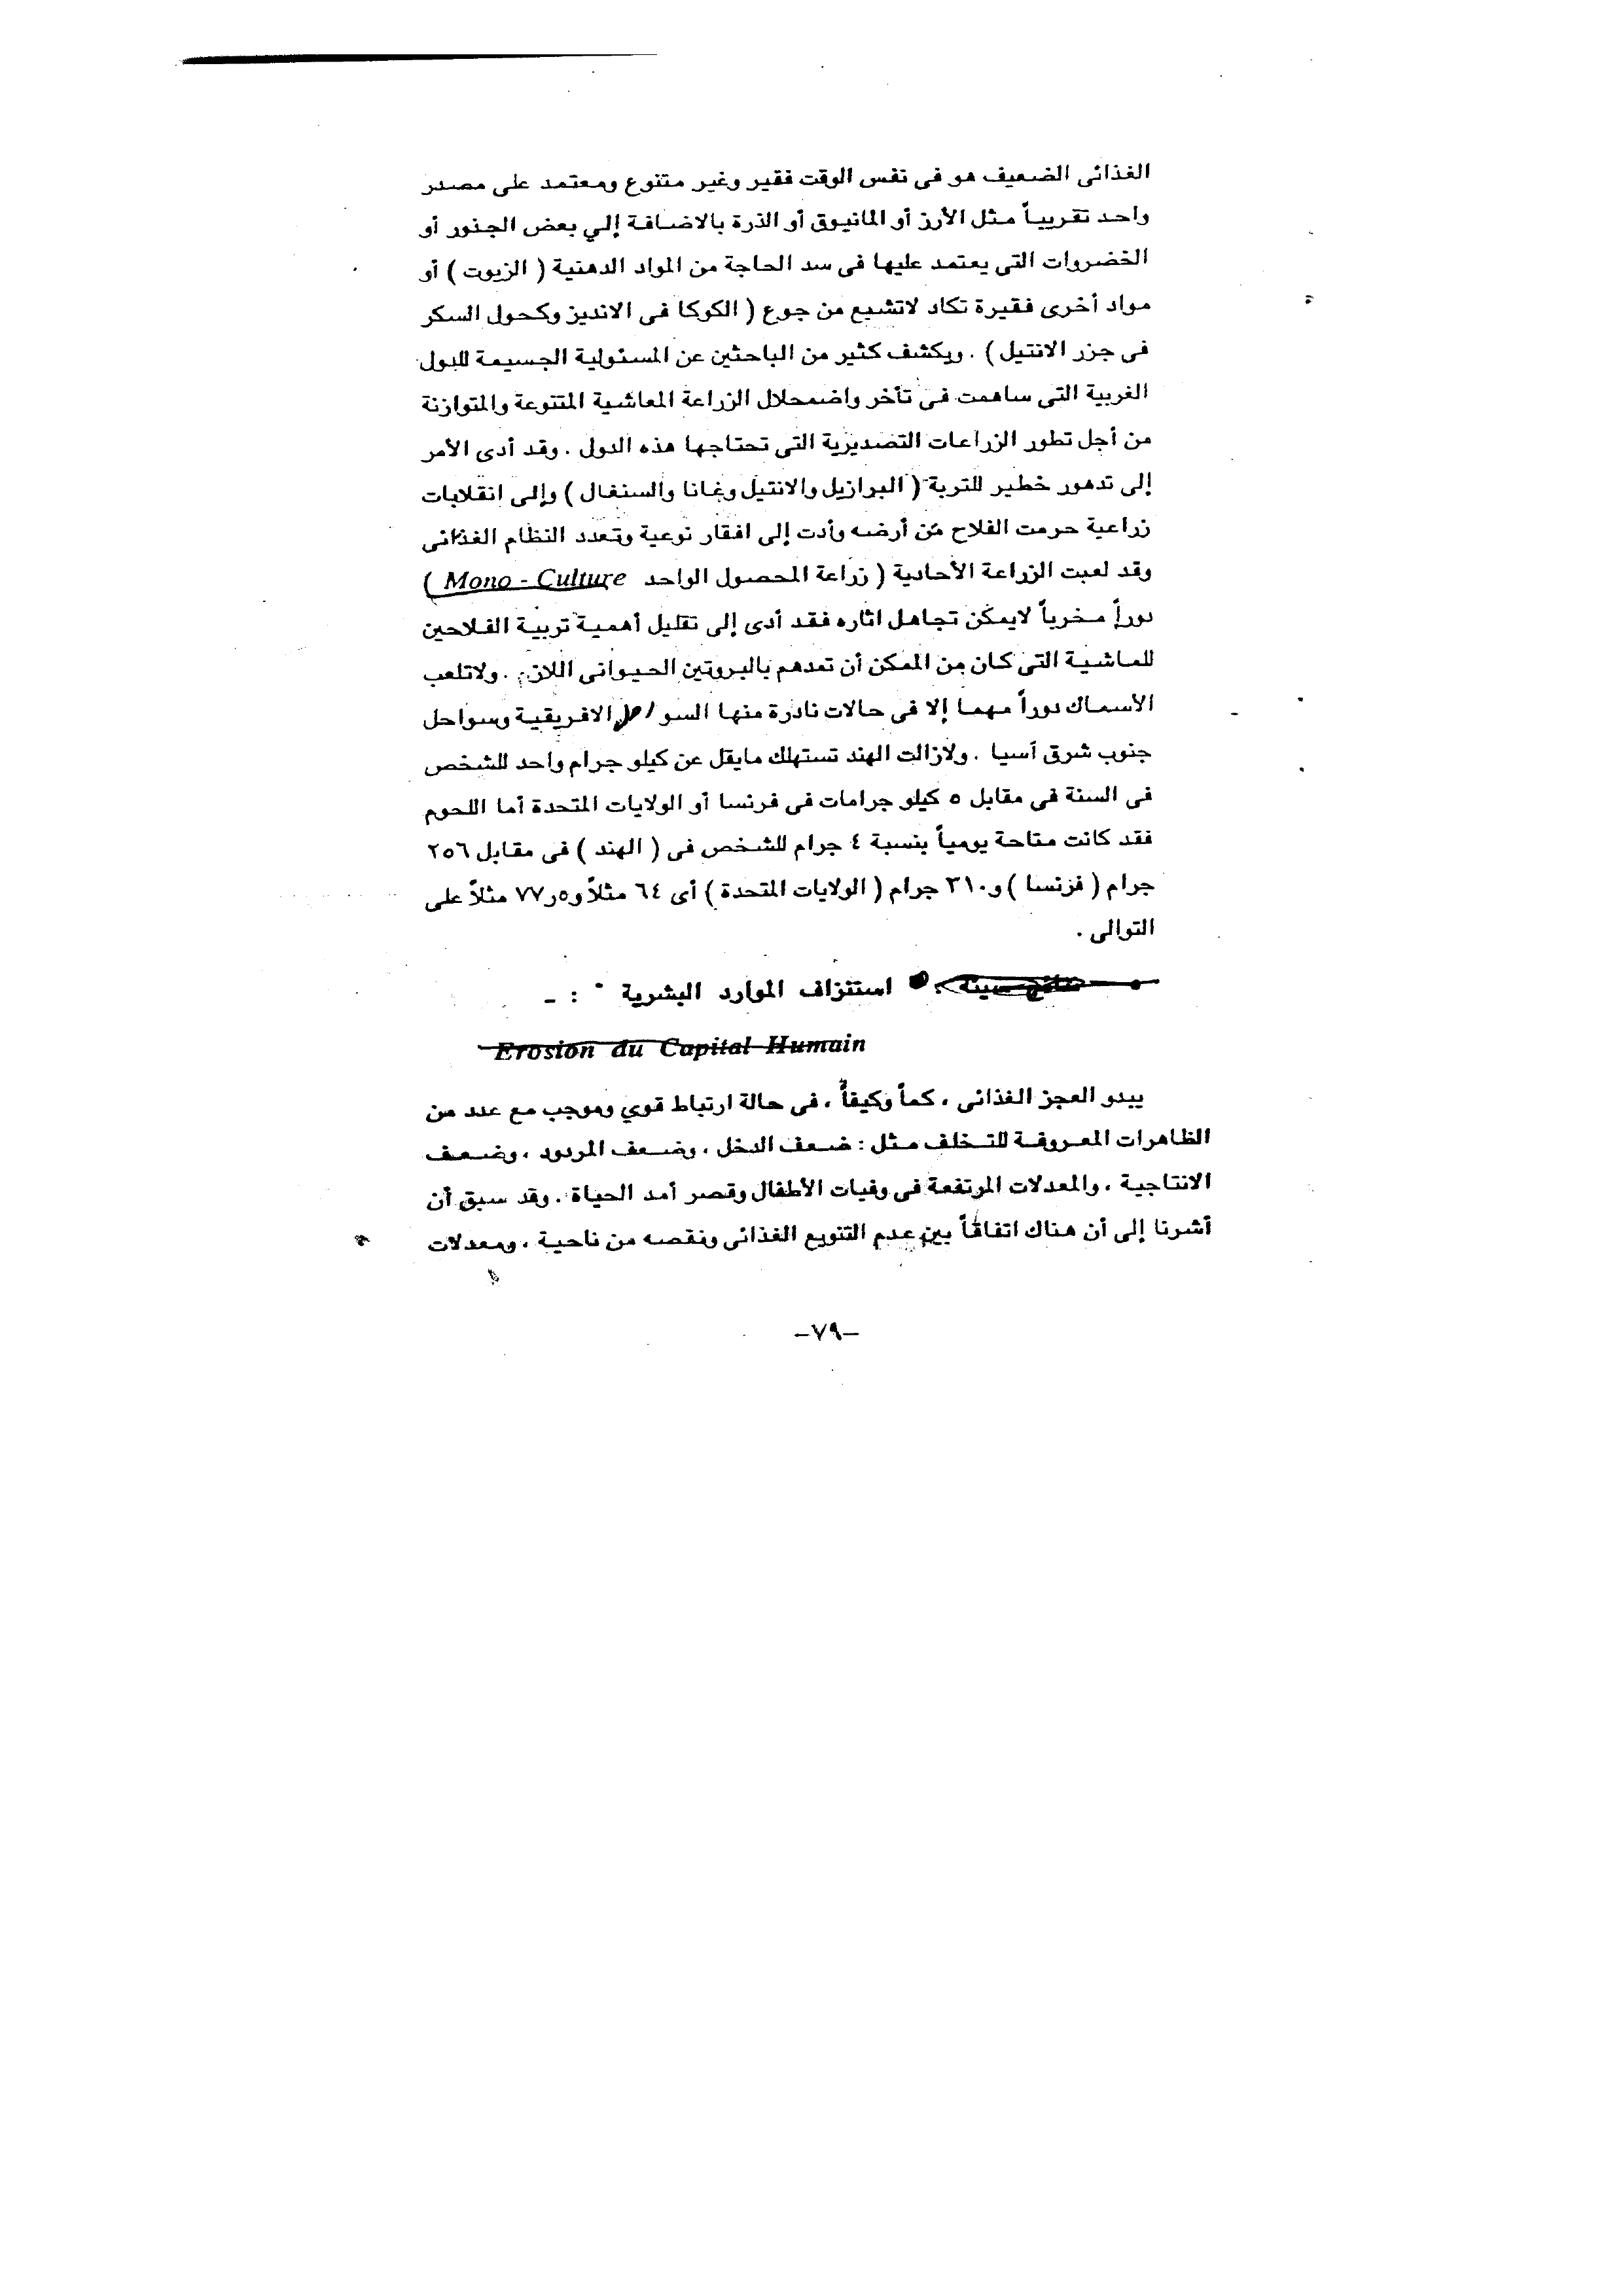 الغذائى الضعيف هو فى نفس الوقت فقير وغير متنوع ومعتمد على مصدر
واحد تقريباً مثل الأرز أو المانيوق أو الذرة بالاضافة إلي بعض الجنور أو
الخضروات التى يعتمد عليها فى سد الحاجة من المواد الدهنية ( الزيوت ) أو
مواد أخرى فقيرة تكاد لاتشبع من جوع ( الكوكا فى الانديز وكحول السكر
فى جزر الانتيل ) . ويكشف كثير من الباحثين عن المسئولية الجسيمة للبول
الغربية التى ساهمت فى تأخر واضمحلال الزراعة المعاشية المتنوعة والمتوازنة
من أجل تطور الزراعات التصديرية التى تحتاجها هذه الدول . وقد أدى الأمر
إلى تدهور خطير للتربة ( البرازيل والانتيل وغانا والسنغال ) وإلى انقلابات
زراعية حرمت الفلاح من أرضه وأدت إلى افقار نوعية وتعدد النظام الغذائى
وقد لعبت الزراعة الأحادية ( زراعة المحصول الواحد Mono - Culture )
دوراً مخرباً لايمكن تجاهل اثاره فقد أدى إلى تقليل أهمية تربية الفلاحين
للماشية التى كان من الممكن أن تمدهم بالبروتين الحيوانى . ولاتلعب
الأسماك دوراً مهما إلا فى حالات نادرة منها الافريقية وسواحل
جنوب شرق أسيا . ولازالت الهند تستهلك مايقل عن كيلو جرام واحد للشخص
فى السنة فى مقابل ٥ كيلو جرامات فى فرنسا أو الولايات المتحدة أما اللحوم
فقد كانت متاحة يومياً بنسبة ٤ جرام للشخص فى ( الهند ) فى مقابل ٢٥٦
جرام ( فرنسا ) و٣١٠ جرام ( الولايات المتحدة ) أى ٦٤ مثلاً و٥ر٧٧ مثلاً على
التوالى .
استنزاف الموارد البشرية " : ـ
Erosion du Capital Humain
يبدو العجز الغذائى ، كماً وكيفاً ، فى حالة ارتباط قوي وموجب مع عدد من
الظاهرات المعروفة للتخلف مثل : ضعف الدخل ، وضعف المردود ، وضعف
الانتاجية ، والمعدلات المرتفعة فى وفيات الأطفال وقصر أمد الحياة . وقد سبق أن
أشرنا إلى أن هناك اتفاقاً بين عدم التنويع الغذائى ونقصه من ناحية ، ومعدلات
-٧٩-